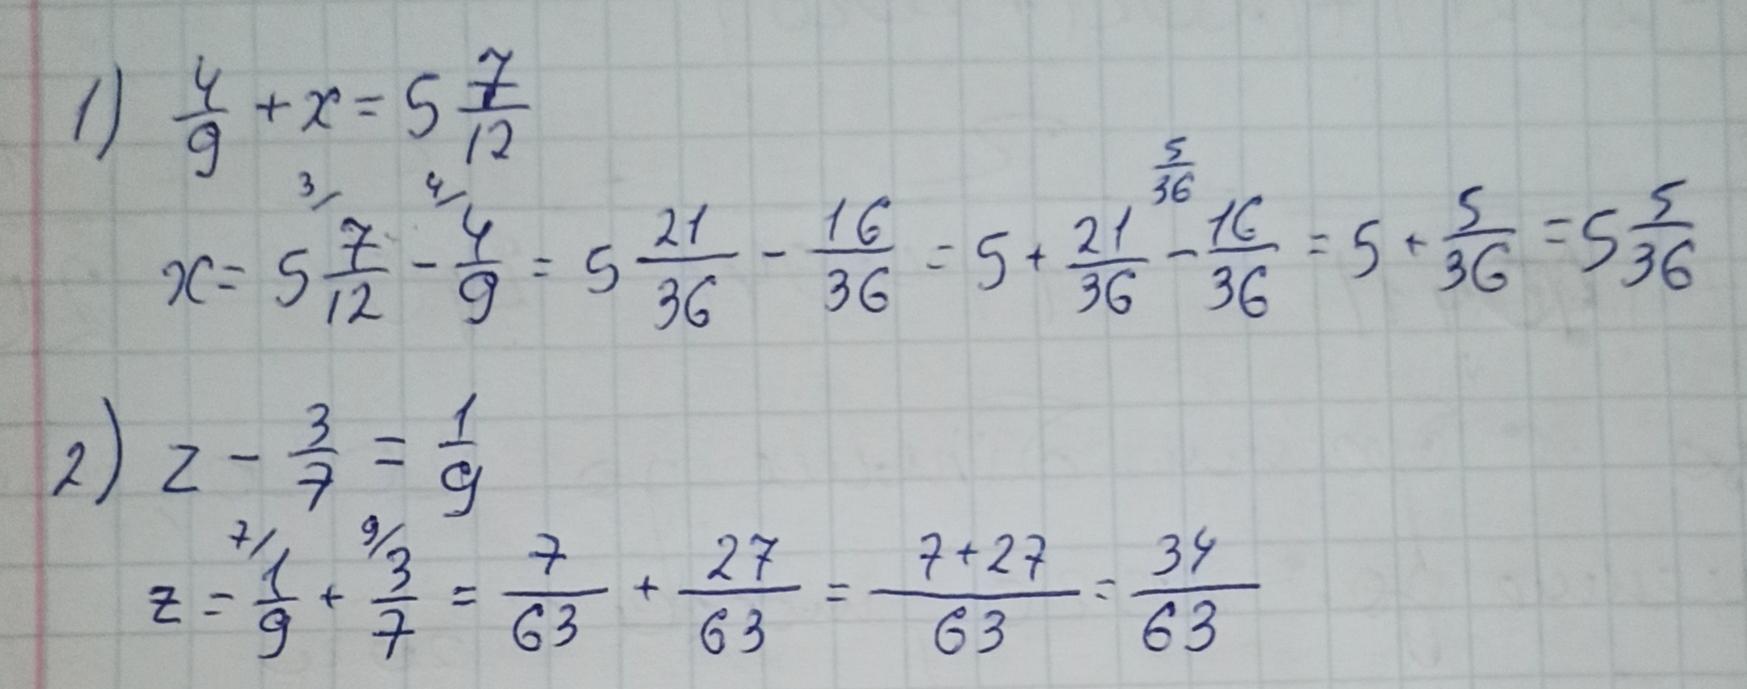 1) 4/9 + x = 5 7/12
x = 5 3/ 7/12 - 4/ 4/9 = 5 21/36 - 16/36 = 5 + 21/36 - 16/36 5/36 = 5 + 5/36 = 5 5/36
2) z - 3/7 = 1/9
z = 7/ 1/9 + 9/ 3/7 = 7/63 + 27/63 = 7+27/63 = 34/63